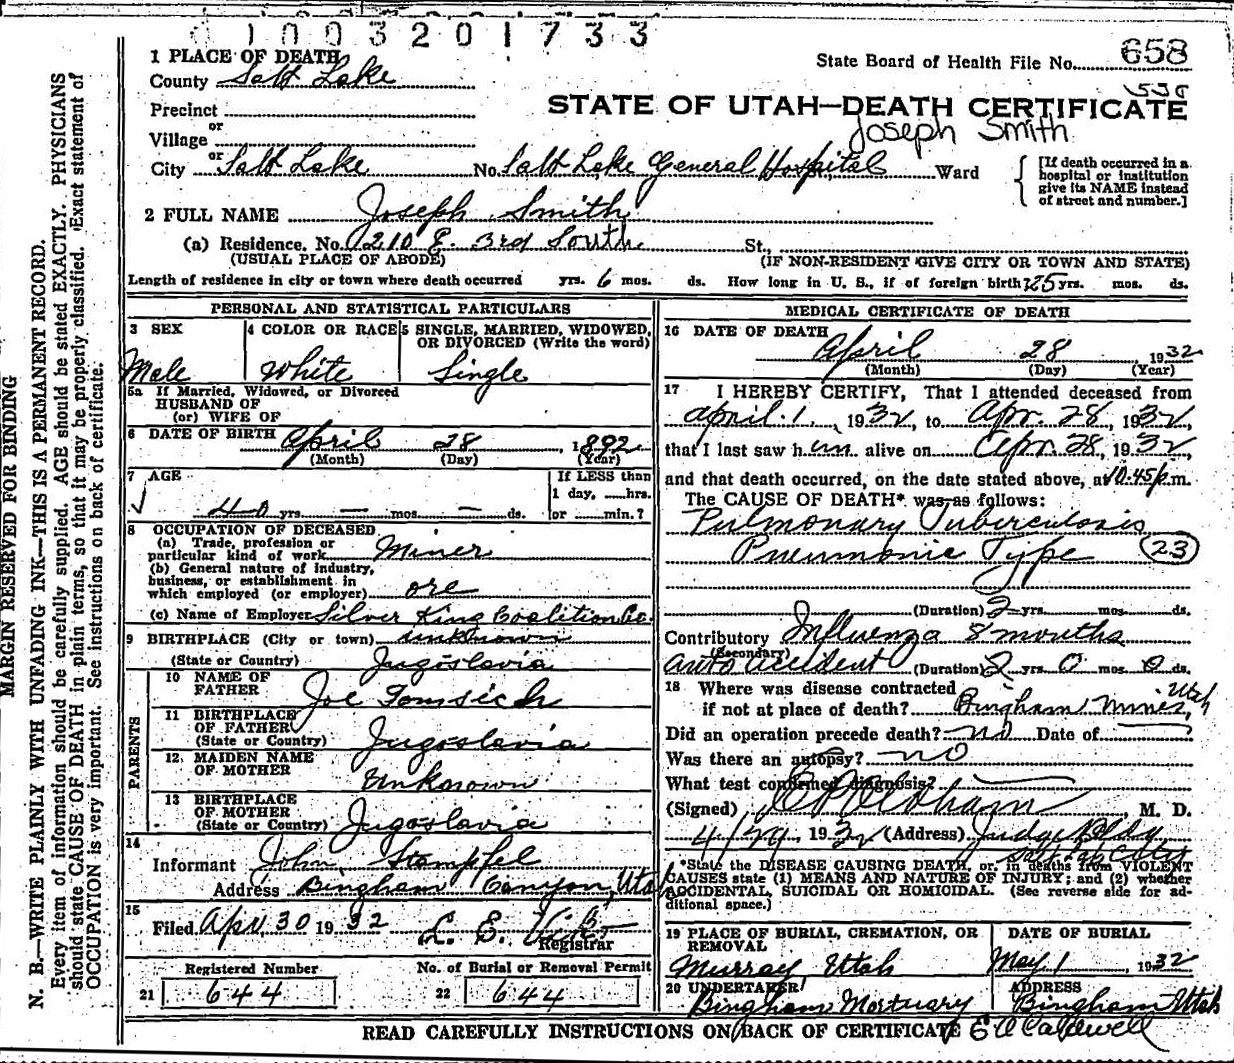 01003201733
1 PLACE OF DEATH
County Salt Lake
State Board of Health File No. 658
Precinct
STATE OF UTAH—DEATH CERTIFICATE
Joseph Smith
or
Village
or
City Salt Lake No. Salt Lake General Hospital Ward
[If death occurred in a
hospital or institution
give its NAME instead
of street and number.]
2 FULL NAME Joseph Smith
(a) Residence. No. 210 E. 3rd South St.
(USUAL PLACE OF ABODE) (IF NON-RESIDENT GIVE CITY OR TOWN AND STATE)
Length of residence in city or town where death occurred yrs. 6 mos. ds. How long in U. S., if of foreign birth? 25 yrs. mos. ds.
PERSONAL AND STATISTICAL PARTICULARS
3 SEX 4 COLOR OR RACE 5 SINGLE, MARRIED, WIDOWED,
OR DIVORCED (Write the word)
Male White Single
5a If Married, Widowed, or Divorced
HUSBAND OF
(or) WIFE OF
6 DATE OF BIRTH April 28, 1892
(Month) (Day) (Year)
7 AGE If LESS than
1 day, hrs.
40 yrs. — mos. — ds. or min.?
8 OCCUPATION OF DECEASED
(a) Trade, profession or
particular kind of work Miner
(b) General nature of industry,
business, or establishment in
which employed (or employer) ore
(c) Name of Employer Silver King Coalition Co.
9 BIRTHPLACE (City or town) unknown
(State or Country) Jugoslavia
PARENTS
10 NAME OF
FATHER Joe Tomsich
11 BIRTHPLACE
OF FATHER
(State or Country) Jugoslavia
12. MAIDEN NAME
OF MOTHER Unknown
13 BIRTHPLACE
OF MOTHER
(State or Country) Jugoslavia
14
Informant John Stampfel
Address Bingham Canyon, Utah
15
Filed Apr. 30 1932 L. E.
Registrar
Registered Number No. of Burial or Removal Permit
21 644 22 644
MEDICAL CERTIFICATE OF DEATH
16 DATE OF DEATH
April 28, 1932
(Month) (Day) (Year)
17 I HEREBY CERTIFY, That I attended deceased from
April 1, 1932, to Apr. 28, 1932,
that I last saw him alive on Apr. 28, 1932,
and that death occurred, on the date stated above, at 10:45 p.m.
The CAUSE OF DEATH* was as follows:
Pulmonary Tuberculosis
Pneumonic Type 23
(Duration) 2 yrs. mos. ds.
Contributory Influenza 8 months
(Secondary)
Auto accident (Duration) 2 yrs. 0 mos. 0 ds.
18 Where was disease contracted
if not at place of death? Bingham Mines, Utah
Did an operation precede death? no Date of
Was there an autopsy? no
What test confirmed diagnosis?
(Signed) M. D.
4/29, 1932 (Address) Judge Bldg
Salt Lake City
*State the DISEASE CAUSING DEATH, or, in deaths from VIOLENT
CAUSES state (1) MEANS AND NATURE OF INJURY; and (2) whether
ACCIDENTAL, SUICIDAL OR HOMICIDAL. (See reverse side for ad-
ditional space.)
19 PLACE OF BURIAL, CREMATION, OR
REMOVAL DATE OF BURIAL
Murray, Utah May 1 1932
20 UNDERTAKER ADDRESS
Bingham Mortuary Bingham Utah
READ CAREFULLY INSTRUCTIONS ON BACK OF CERTIFICATE E A Caldwell
MARGIN RESERVED FOR BINDING
N. B.—WRITE PLAINLY WITH UNFADING INK—THIS IS A PERMANENT RECORD.
Every item of information should be carefully supplied. AGE should be stated EXACTLY. PHYSICIANS
should state CAUSE OF DEATH in plain terms, so that it may be properly classified. Exact statement of
OCCUPATION is very important. See instructions on back of certificate.